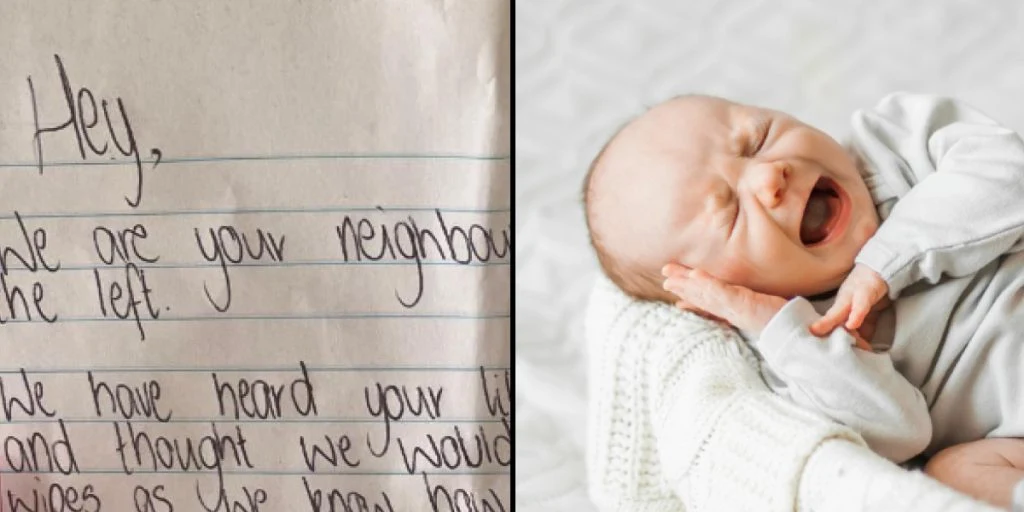 Hey,
We are your neighbou
he left.
We have heard your li
and thought we would
wipes as we know how